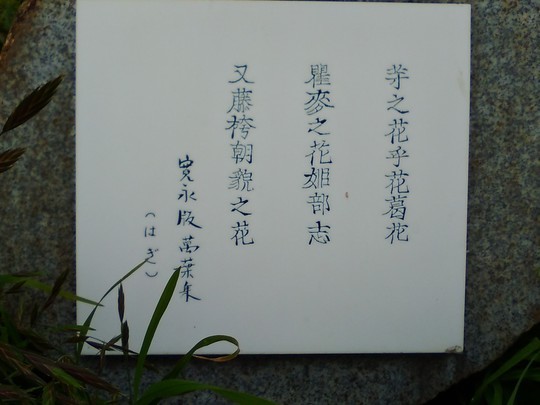 芽之花乎花葛花
瞿麥之花姫部志
又藤袴朝貌之花
寛永版 萬葉集
(はぎ)